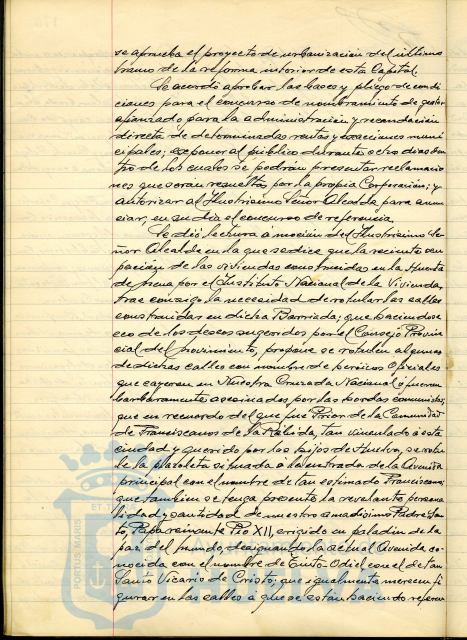 se aprueba el proyecto de urbanización del último
tramo de la reforma interior de esta Capital.
Se acordó aprobar las bases y pliego de condi
ciones para el concurso de nombramiento de gestor
afianzado para la administración y recaudación
directa de determinadas rentas y exacciones muni
cipales; exponer al público durante ocho días den
tro de los cuales se podrán presentar reclamacio
nes que serán resueltas por la propia Corporación; y
autorizar al Ilustrísimo Señor Alcalde para anun
ciar, en su día el concurso de referencia.
Se dió lectura a moción del Ilustrísimo Se
ñor Alcalde en la que se dice que la reciente ocu
pación de las viviendas construidas en la Huerta
de Mena por el Instituto Nacional de la Vivienda,
trae consigo la necesidad de rotular las calles
construidas en dicha Barriada; que haciéndose
eco de los deseos sugeridos por el Consejo Provin
cial del Movimiento, propone se rotulen algunas
de dichas calles con nombre de heroicos Oficiales
que cayeron en Nuestra Cruzada Nacional o fueron
bárbaramente asesinados, por las hordas comunistas;
que en recuerdo del que fué Prior de la Comunidad
de Franciscanos de la Rábida, tan vinculado a esta
ciudad y querido por los hijos de Huelva, se rotu
le la plazoleta situada a la entrada de la Avenida
principal con el nombre de tan estimado Franciscano;
que también se tenga presente la relevante persona
lidad y santidad de nuestro amadísimo Padre San
to, Papa reinante Pío XII, erigido en paladín de la
paz del mundo, designando la actual Avenida co
nocida con el nombre de Tinto-Odiel con el de tan
Santo Vicario de Cristo; que igualmente merecen fi
gurar en las calles a que se están haciendo referen
PORTUS MARIS
ET TERRA